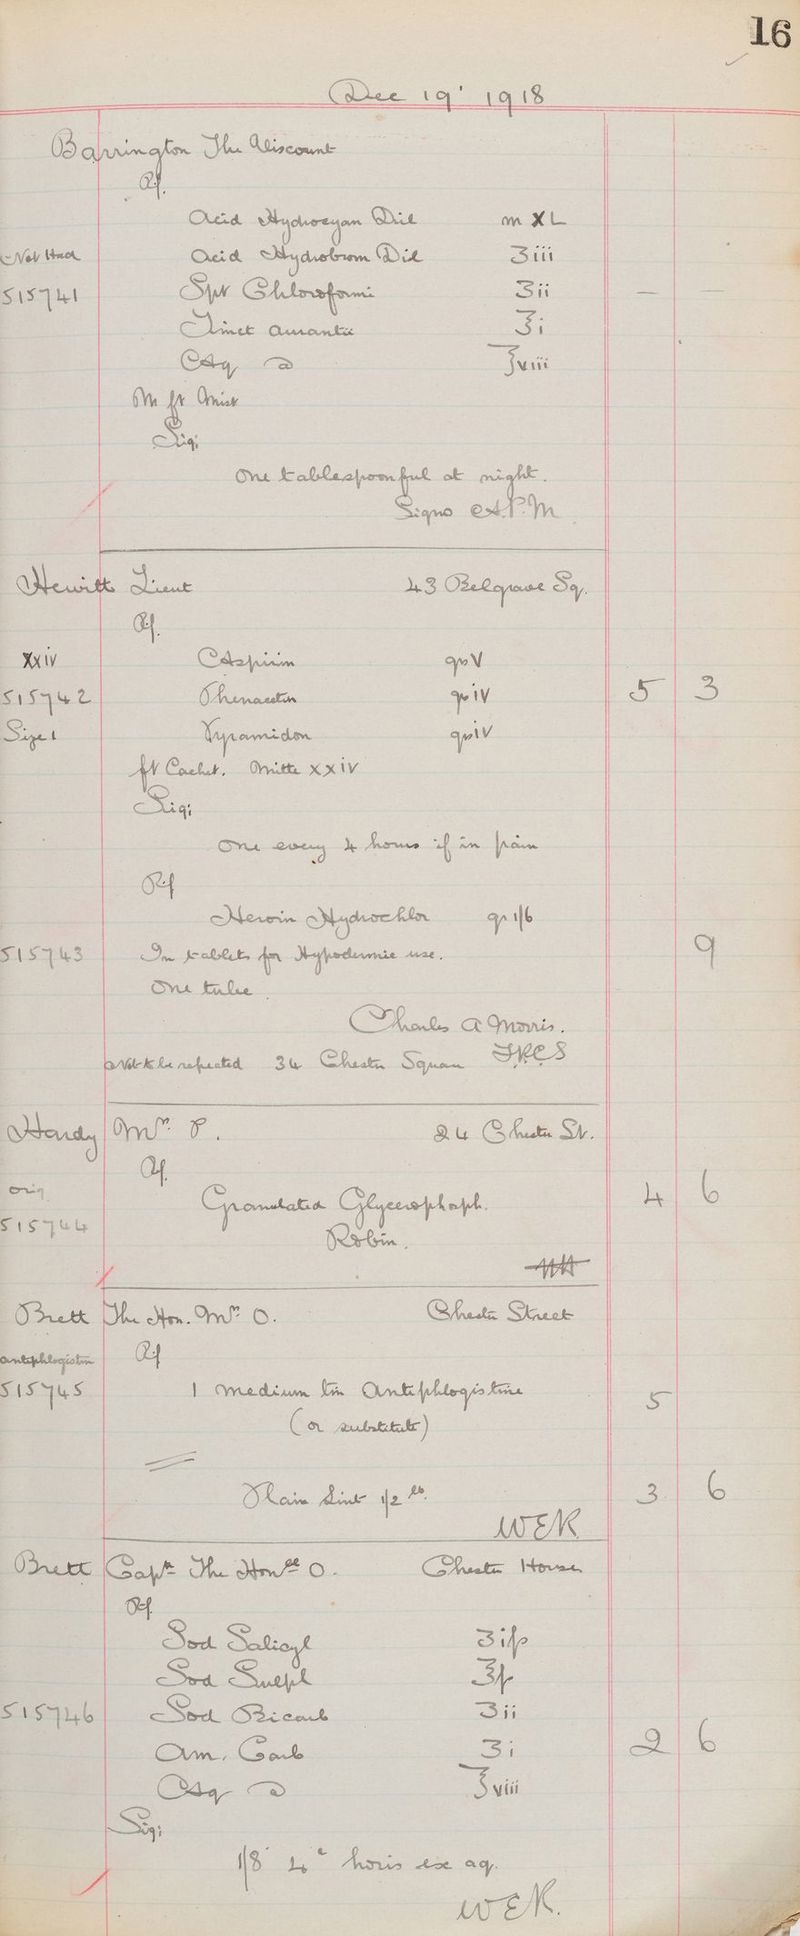 16
Dec 19' 1918
Barrington The Viscount
Rx.
Acid Hydrocyan Dil m XL
Not Had Acid Hydrobrom Dil ʒiii
515741 Spt Chloroformi ʒii — —
Tinct Aurantii ℥i
Aq ad ℥viii
M ft Mist
Sig;
One tablespoonful at night.
Signo A.P.M
Hewitt Lieut 43 Belgrave Sq.
Rx.
xxiv Aspirin grs V
515742 Phenacetin grs iV 5 3
Size 1 Pyramidon grs iV
ft Cachet. Mitte xxiv
Sig;
One every 4 hours if in pain
Rx
Heroin Hydrochlor gr 1/6
515743 In tablets for Hypodermic use. 9
One tube.
Charles A Morris.
Not to be repeated 34 Chester Square F.R.C.S
Hardy Mrs. P. 24 Chester St.
Rx.
orig Granulated Glycerophosph. 4 6
515744
Robin.
Brett The Hon. Mrs. O. Chester Street
antiphlogistin Rx
515745 1 medium tin Antiphlogistine 5
(or substitute)
Plain Lint 1/2 lb. 3 6
WER
Brett Captn The Honble O. Chester House
Rx.
Sod Salicyl ʒifs
Sod Sulph ℥fs
515746 Sod Bicarb ʒii
Am. Carb ʒi 2 6
Aq ad ℥viii
Sig;
1/8 4a horis ex aq.
WER.